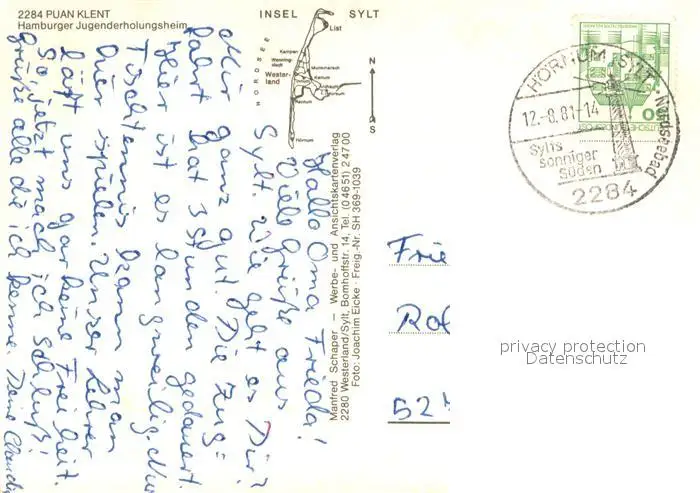 2284 PUAN KLENT
Hamburger Jugenderholungsheim
INSEL SYLT
NORDSEE
List
Kampen
Wenning-
stedt
Munkmarsch
Wester-
land
Keitum
Rantum
Hörnum
N
S
HÖRNUM, SYLT
Nordseebad
12.-8.81-14
Sylts
sonniger
Süden
2284
50
Hallo Oma Frieda!
Viele Grüße aus
Sylt. Wie geht es Dir?
Mir ganz gut. Die Zug=
fahrt hat 3 Stunden gedauert.
Hier ist es langweilig. Nur
Tischtennis kann man
hier spielen. Unser Lehrer
läßt uns gar keine Freiheit.
So jetzt mach ich schluß!
grüße alle die ich kenne. Deine
Manfred Schaper – Werbe- und Ansichtskartenverlag
2280 Westerland/Sylt, Bomhoffstr. 14, Tel. (0 46 51) 2 47 00
Foto: Joachim Eicke · Freig.-Nr. SH 369-1039
Frie
Rof
52
privacy protection
Datenschutz